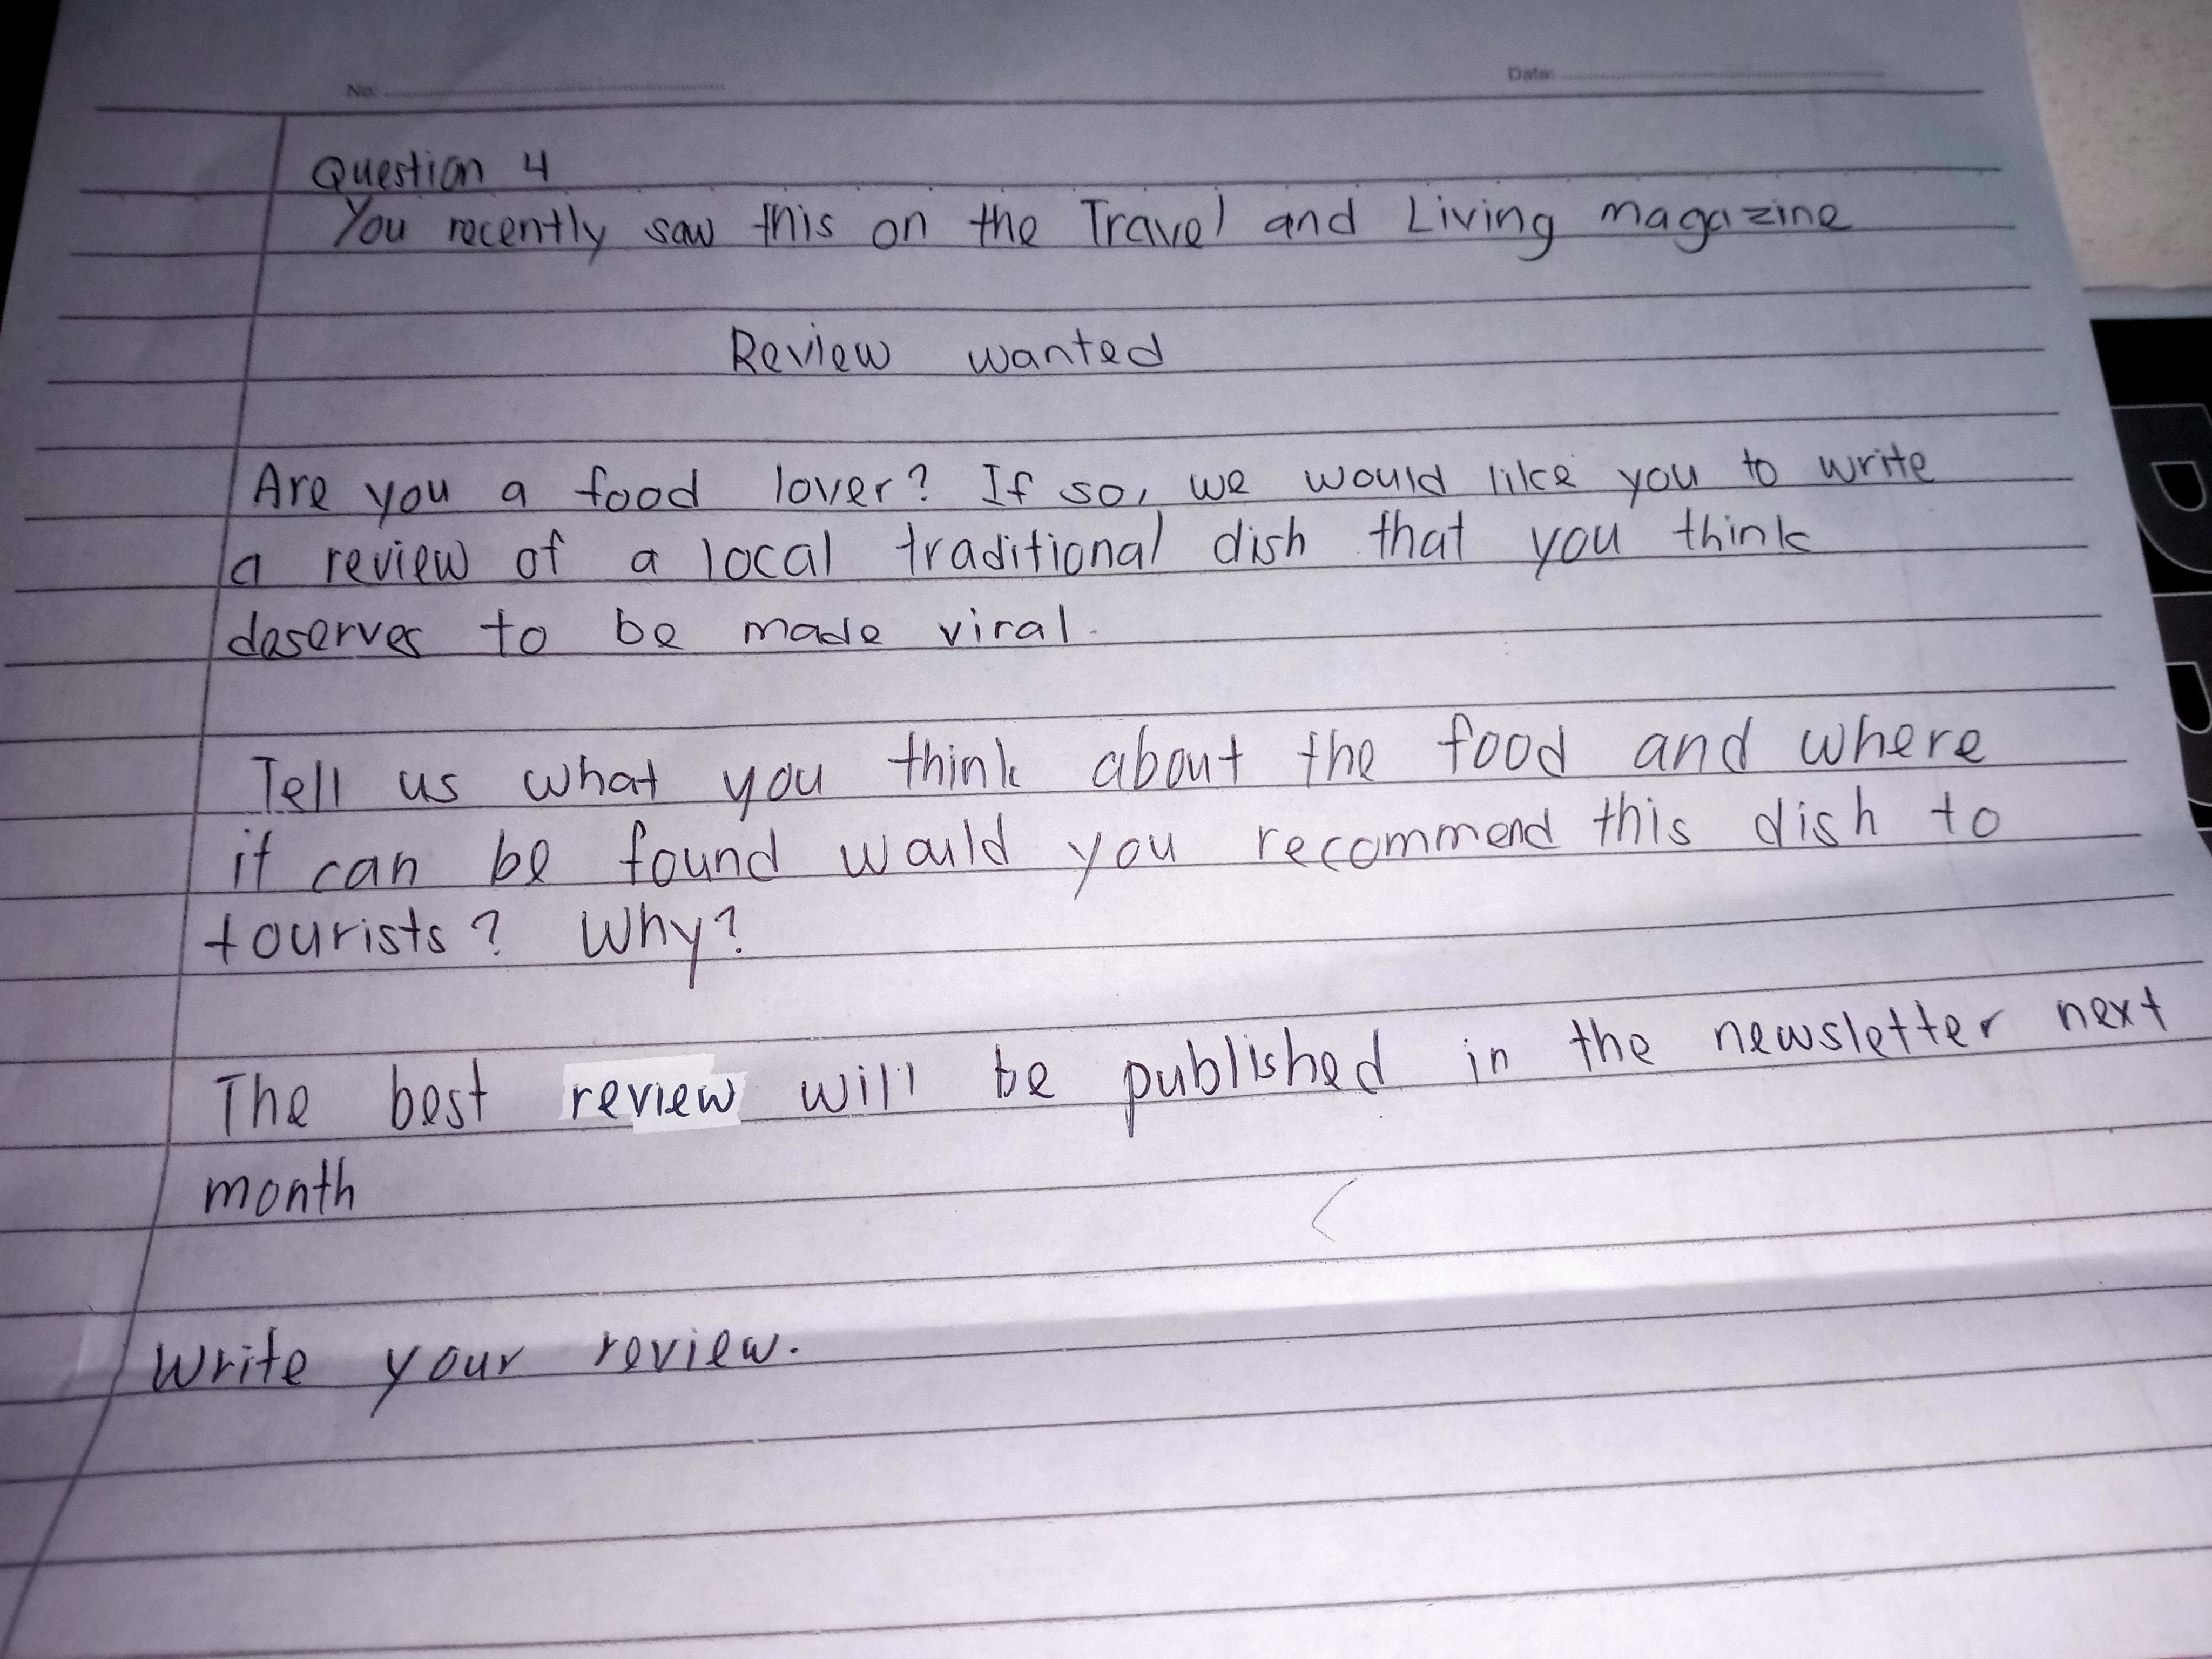 No:
Date:
Question 4
You recently saw this on the Travel and Living magazine
Review wanted
Are you a food lover? If so, we would like you to write
a review of a local traditional dish that you think
deserves to be made viral.
Tell us what you think about the food and where
it can be found would you recommend this dish to
tourists? Why?
The best review will be published in the newsletter next
month
Write your review.